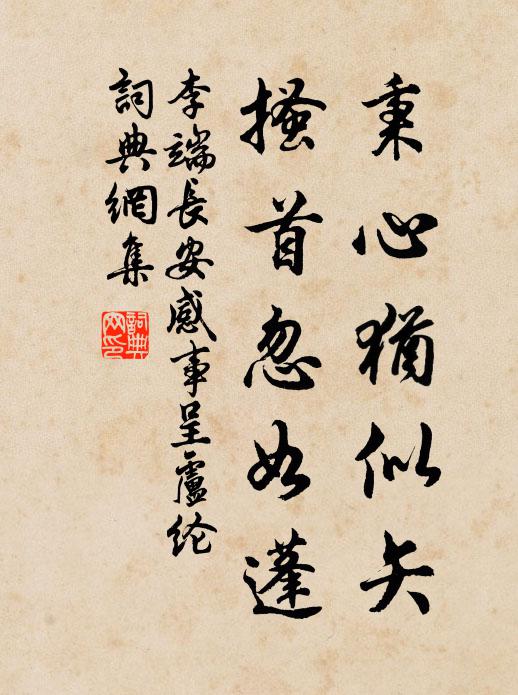 秉心猶似矢
搔首忽如蓬
李端長安感事呈盧纶
詞典網集
詞典
网印